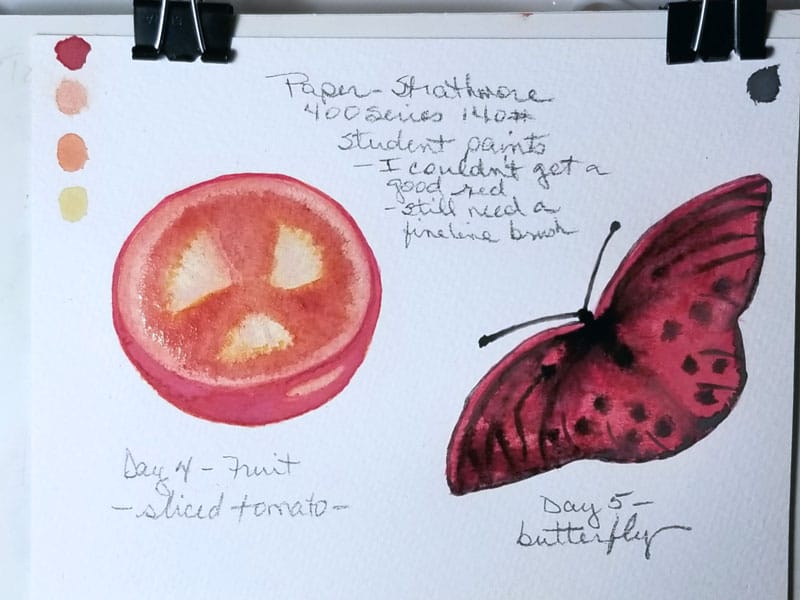 Paper - Strathmore
400 series 140#
Student paints
- I couldn't get a
good red
- still need a
fineline brush
Day 4 - Fruit
- sliced tomato -
Day 5 -
butterfly